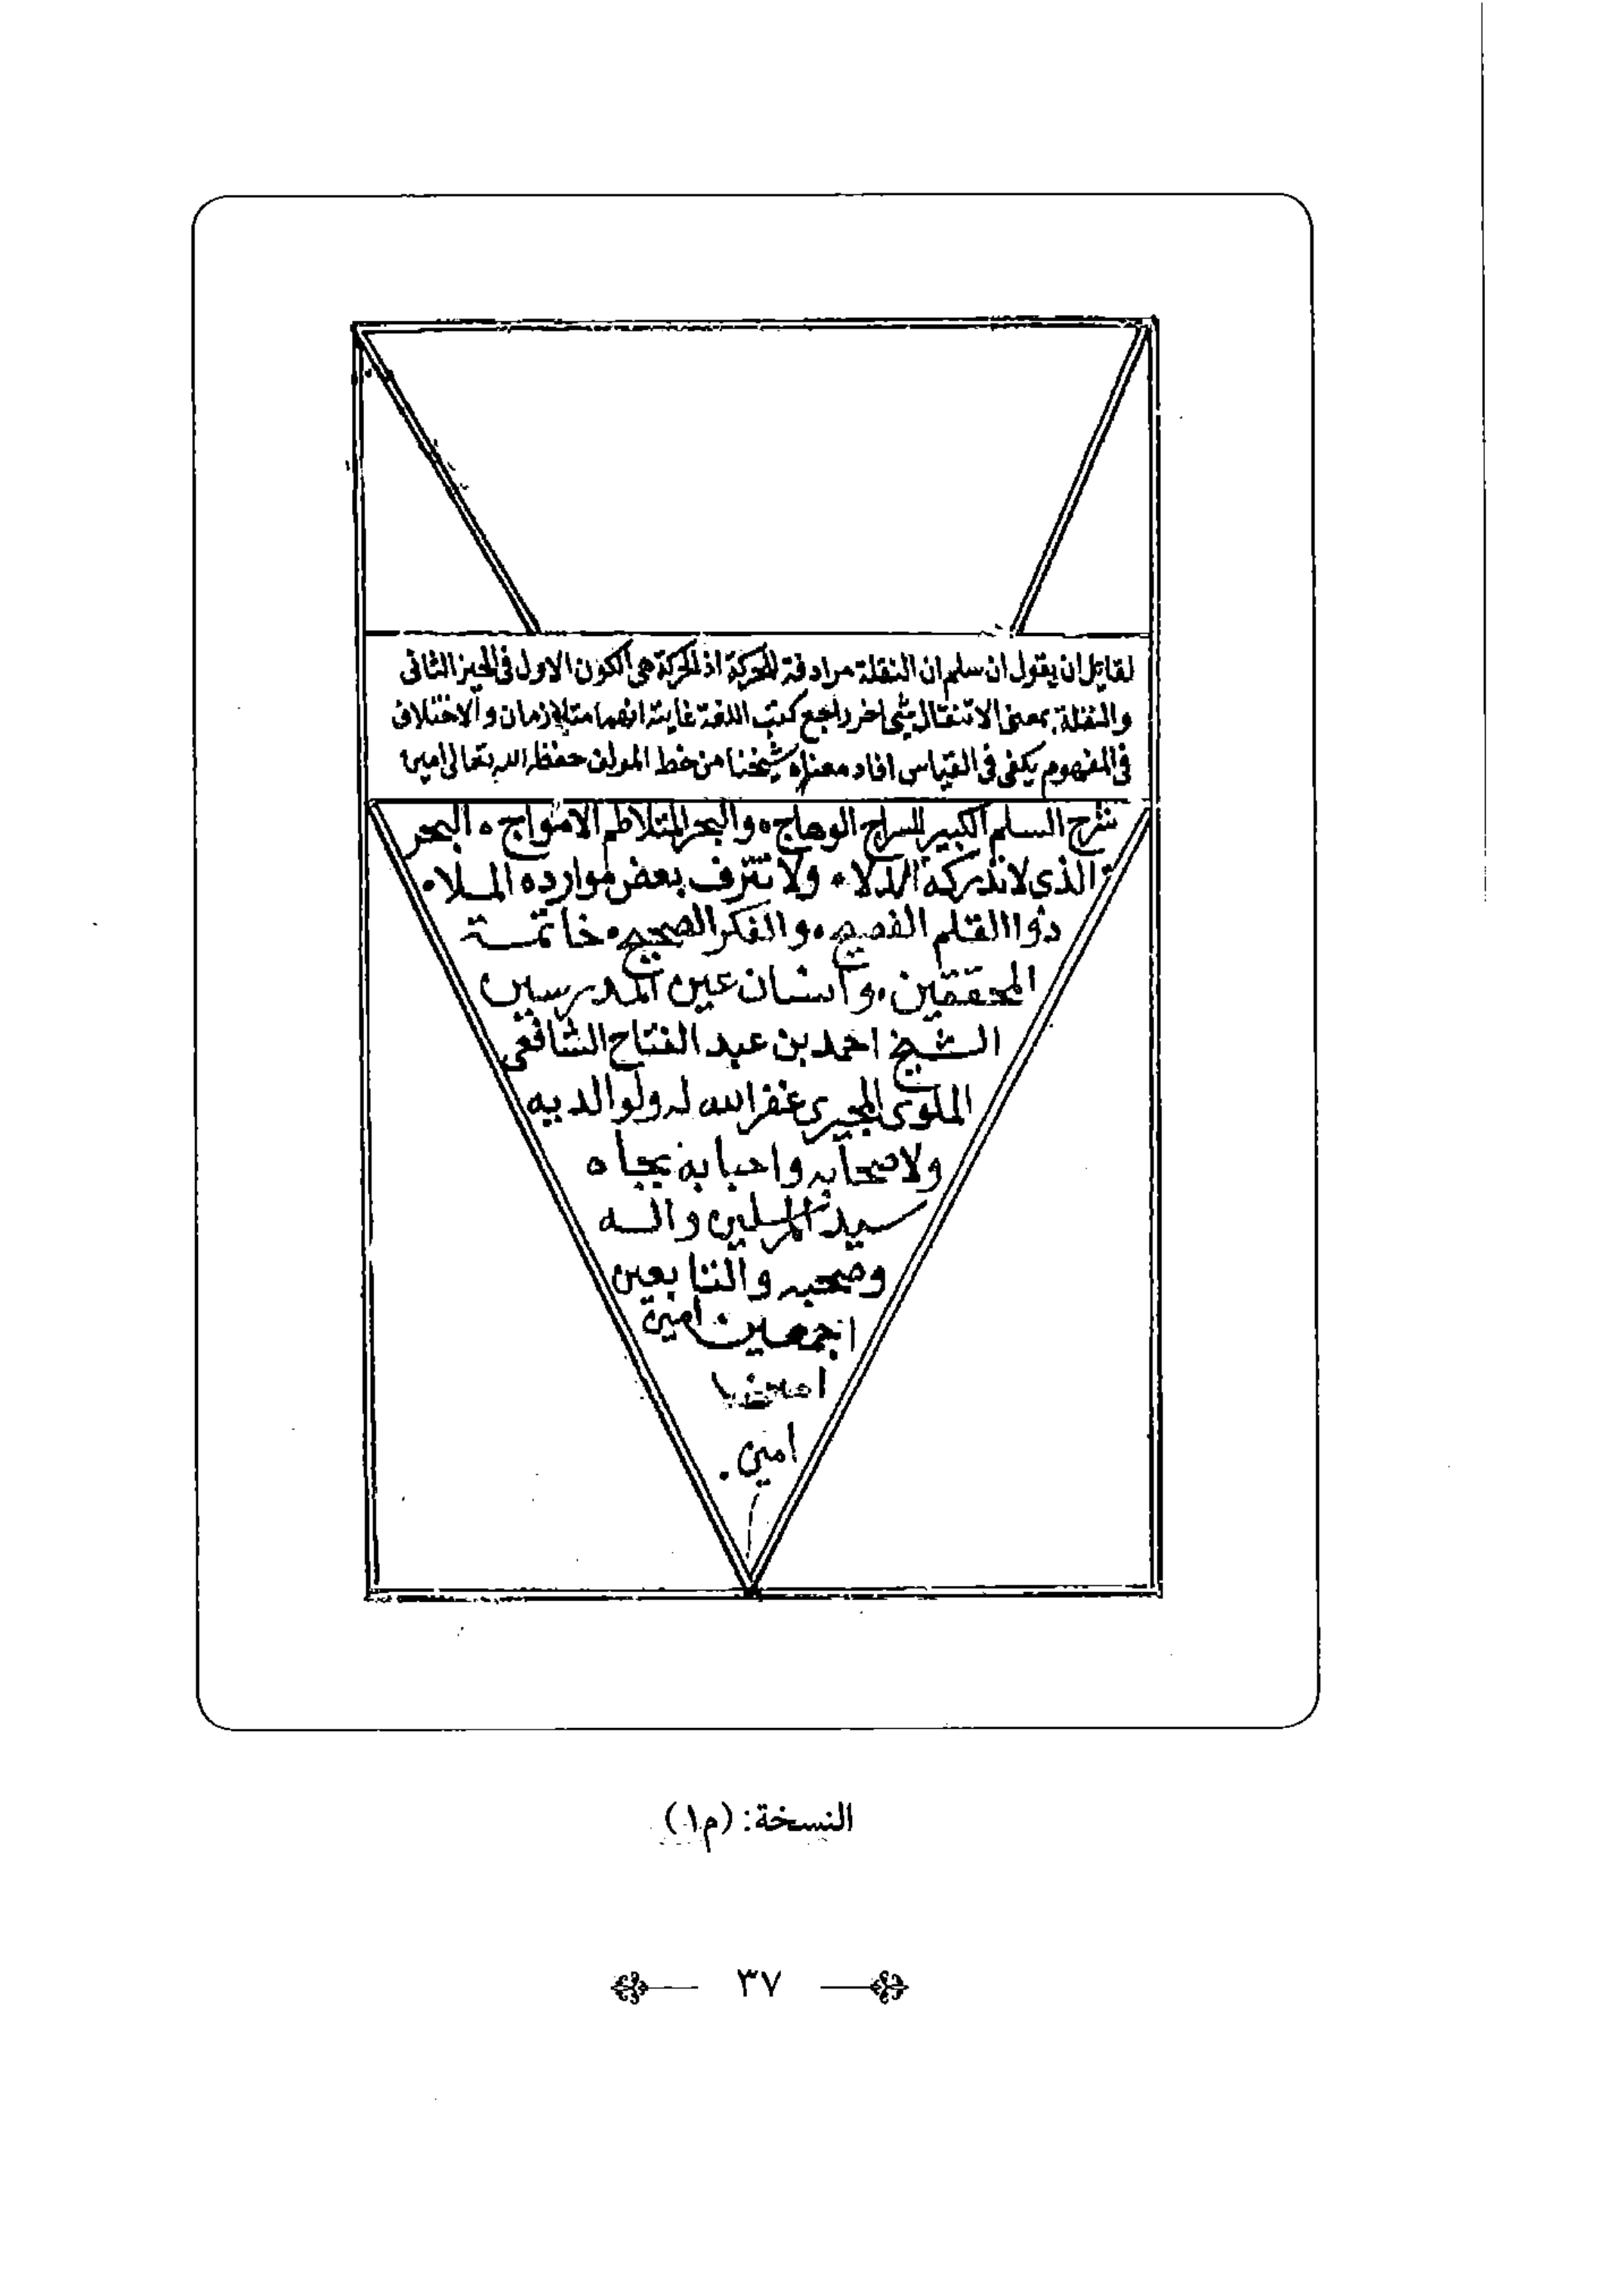 لقائل ان يقول ان سلم ان النقلة مرادفة للحركة اذ الحركة هي الكون الاول في الحيز الثاني
والنقلة بمعنى الانتقال شئ اخر راجع كتب اللغة غايته انهما متلازمان والاختلاف
في المفهوم يكفي في القياس افاد معناه شيخنا من خط المولف حفظه الله تعالى امين
شرح السلم الكبير للسراج الوهاج والبحر المتلاطم الامواج البحر
الذي لا تدركه الدلاء ولا تنزف بعض موارده الملاء
ذوا القلم الفصيح والفكر الصحيح خاتمة
المحققين وانسان عين المدرسين
الشيخ احمد بن عبد الفتاح الشافعي
الملوي المجيري غفر الله له ولوالديه
ولاصحابه واحبابه بجاه
سيد المرسلين واله
وصحبه والتابعين
اجمعين امين
امين
النسخة: (م١)
٣٧